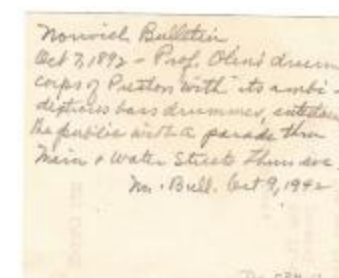 Norwich Bulletin
Oct 7, 1892 - Prof. Olin's drum
corps of Preston with its ambi-
dextrous bass drummer, entertain
the public with a parade thru
Main & Water Streets Thurs eve.
Nor. Bull. Oct 9, 1942